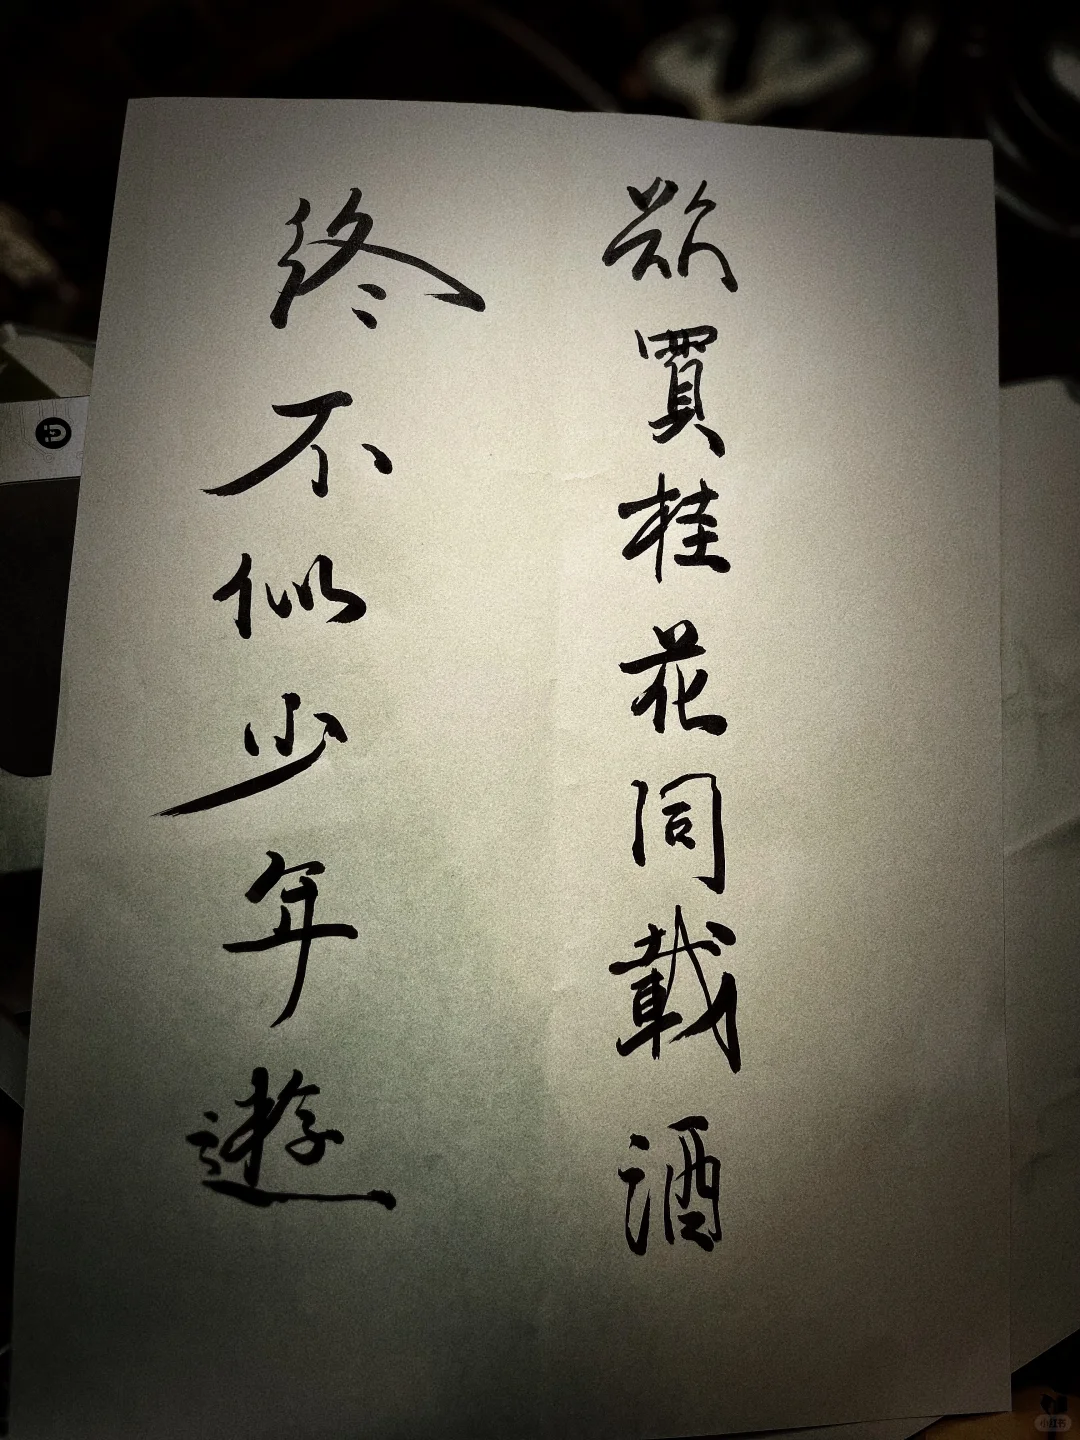 欲買桂花同載酒
終不似少年遊
小红书